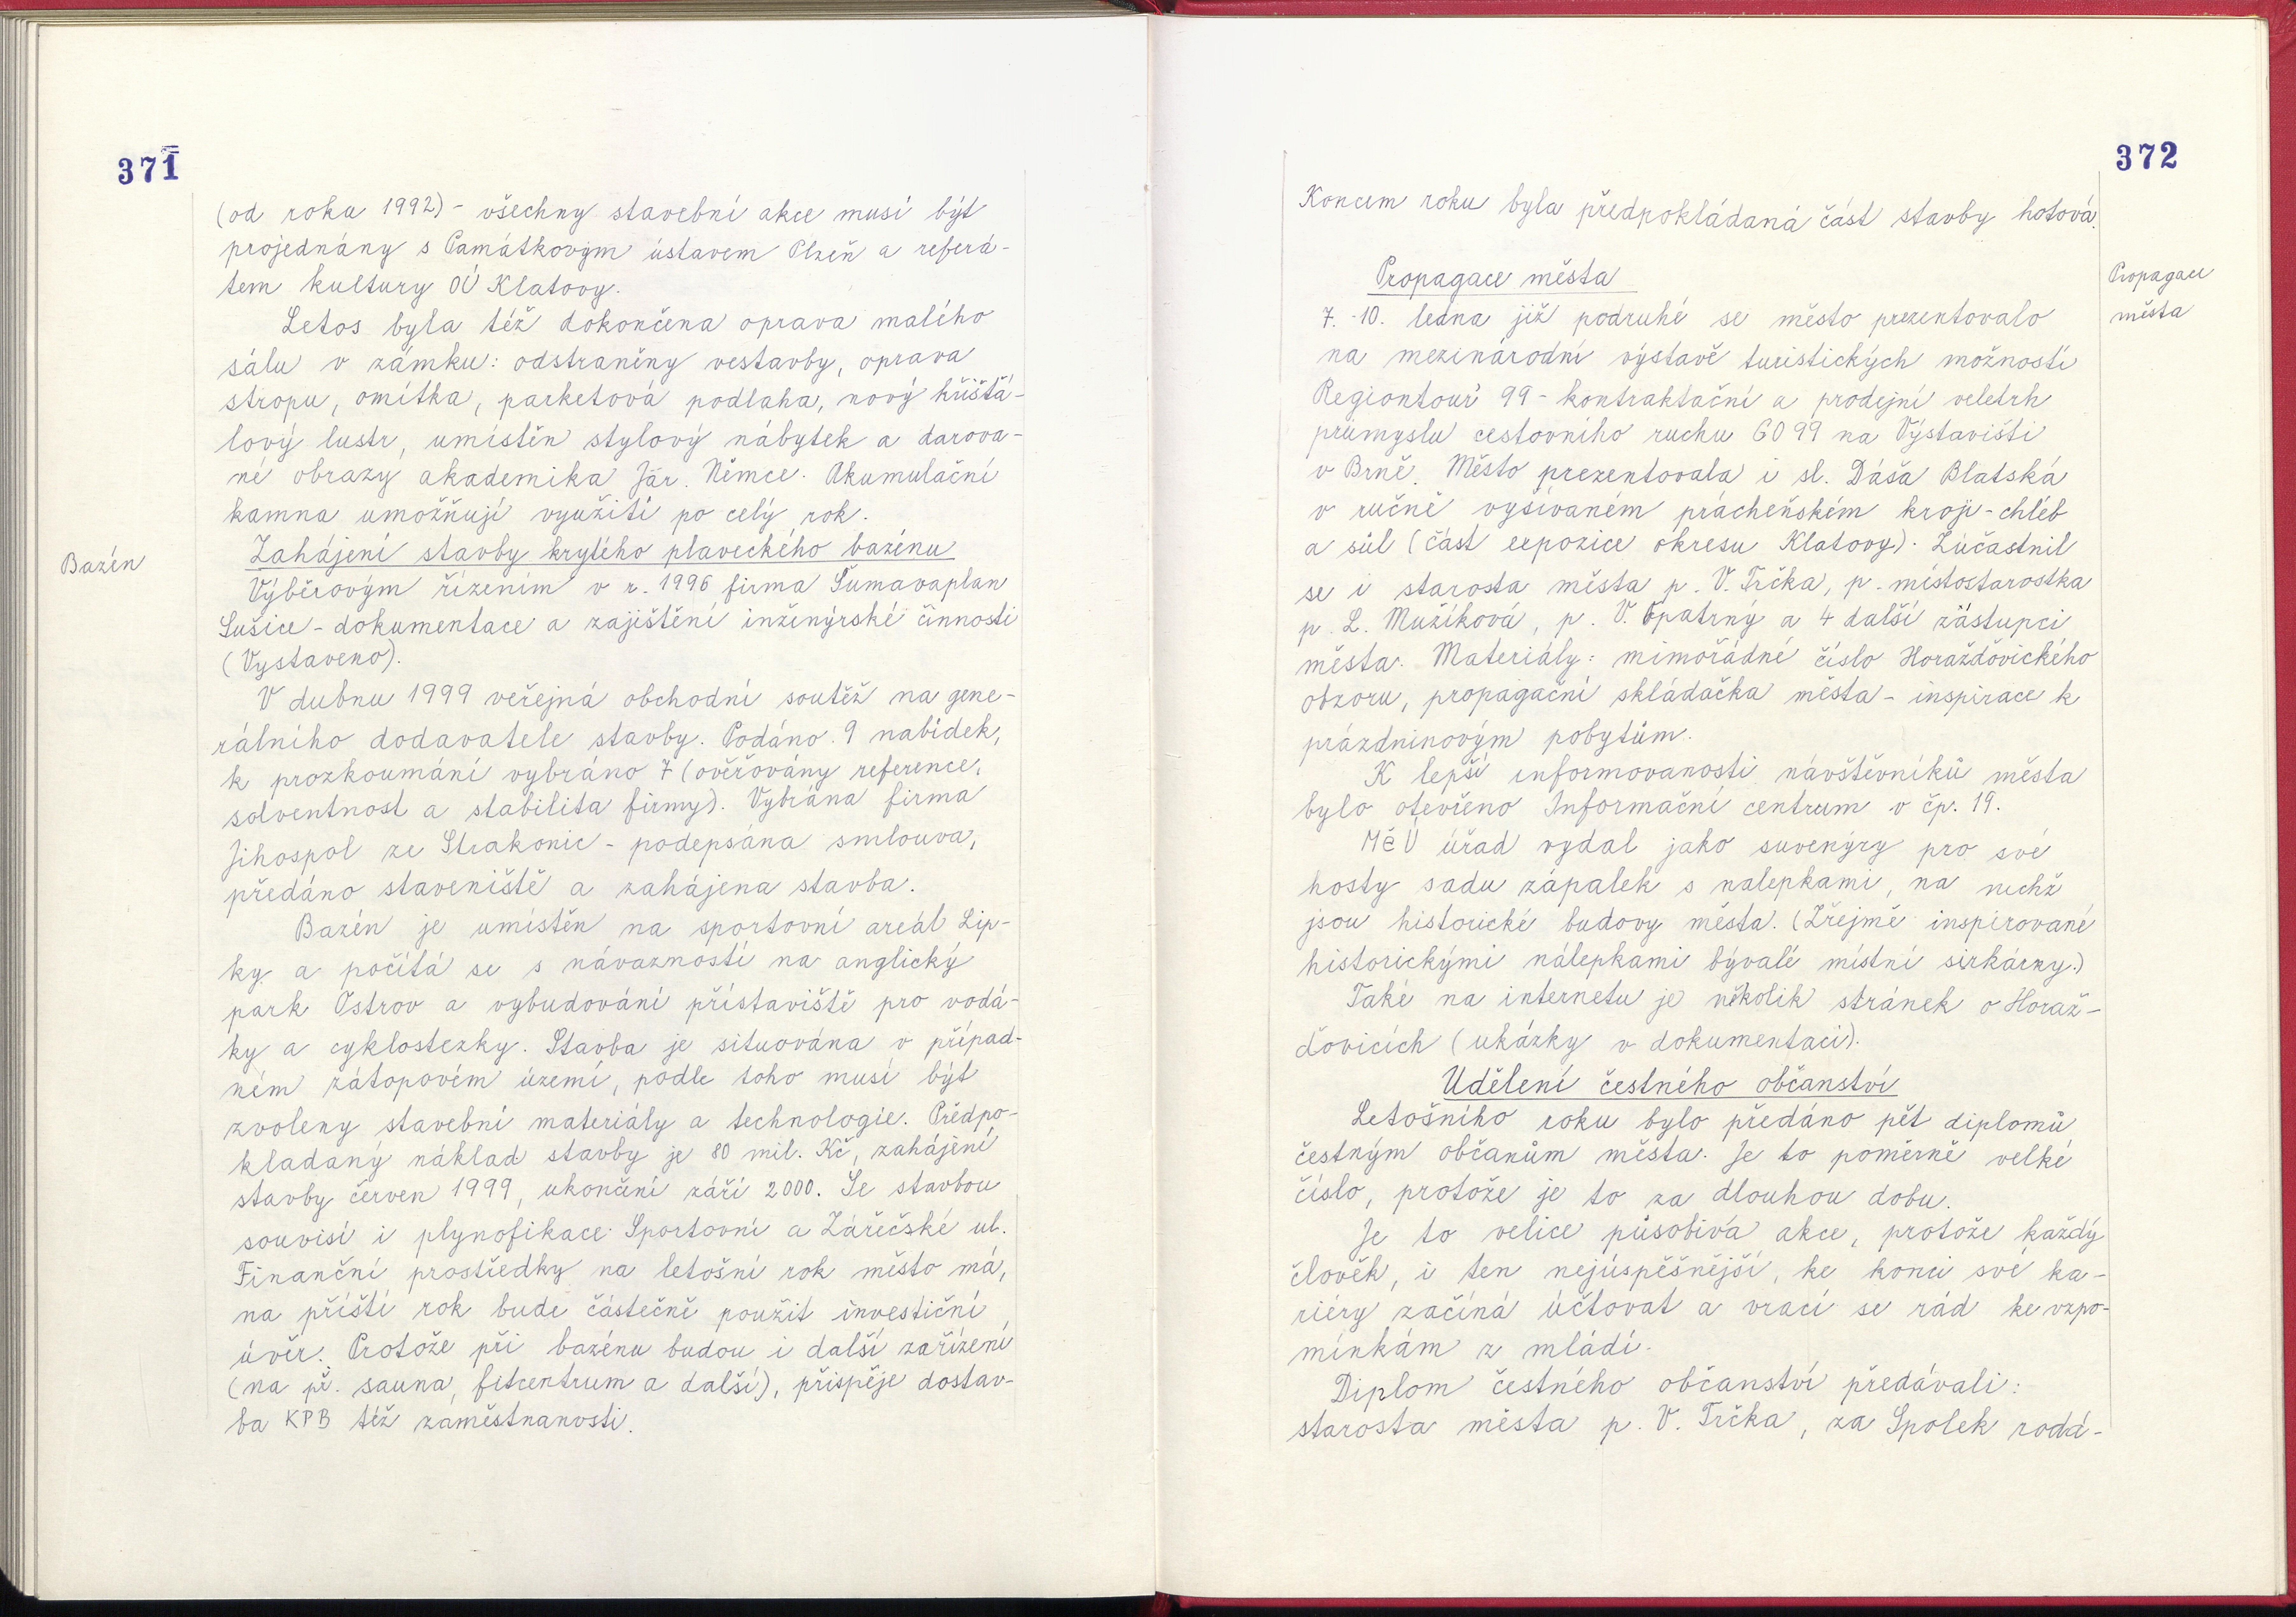 371
(od roku 1992) - všechny stavební akce musí být
projednány s Památkovým ústavem Plzeň a referá-
tem kultury OÚ Klatovy.
Letos byla též dokončena oprava malého
sálu v zámku: odstraněny vestavby, oprava
stropu, omítka, parketová podlaha, nový křišťá-
lový lustr, umístěn stylový nábytek a darova-
né obrazy akademika Jar. Němce. Akumulační
kamna umožňují využití po celý rok.
Bazén
Zahájení stavby krytého plaveckého bazénu
Výběrovým řízením v r. 1996 firma Šumavaplan
Sušice - dokumentace a zajištění inženýrské činnosti
(Vystaveno).
V dubnu 1999 veřejná obchodní soutěž na gene-
rálního dodavatele stavby. Podáno 9 nabídek,
k prozkoumání vybráno 7 (ověřovány reference,
solventnost a stabilita firmy). Vybrána firma
Jihospol ze Strakonic - podepsána smlouva,
předáno staveniště a zahájena stavba.
Bazén je umístěn na sportovní areál Lip-
ky a počítá se s návazností na anglický
park Ostrov a vybudování přístaviště pro vodá-
ky a cyklostezky. Stavba je situována v případ-
ném zátopovém území, podle toho musí být
zvoleny stavební materiály a technologie. Předpo-
kladaný náklad stavby je 80 mil. Kč, zahájení
stavby červen 1999, ukončení září 2000. Se stavbou
souvisí i plynofikace Sportovní a Zářečské ul.
Finanční prostředky na letošní rok město má,
na příští rok bude částečně použit investiční
úvěr. Protože při bazénu budou i další zařízení
(na př. sauna, fitcentrum a další), přispěje dostav-
ba KPB též zaměstnanosti.
372
Koncem roku byla předpokládaná část stavby hotová.
Propagace města
Propagace
města
7. -10. ledna již podruhé se město prezentovalo
na mezinárodní výstavě turistických možností
Regiontour 99 - kontraktační a prodejní veletrh
průmyslu cestovního ruchu GO 99 na Výstavišti
v Brně. Město prezentovala i sl. Dáša Blatská
v ručně vyšívaném prácheňském kroji - chléb
a sůl (část expozice okresu Klatovy). Zúčastnil
se i starosta města p. V. Trčka, p. místostarostka
p. L. Mužíková, p. V. Opatrný a 4 další zástupci
města. Materiály: mimořádné číslo Horažďovického
obzoru, propagační skládačka města - inspirace k
prázdninovým pobytům.
K lepší informovanosti návštěvníků města
bylo otevřeno Informační centrum v čp. 19.
MěÚ úřad vydal jako suvenýry pro své
hosty sadu zápalek s nalepkami, na nichž
jsou historické budovy města. (Zřejmě inspirované
historickými nálepkami bývalé místní sirkárny.)
Také na internetu je několik stránek o Horaž-
ďovicích (ukázky v dokumentaci).
Udělení čestného občanství
Letošního roku bylo předáno pět diplomů
čestným občanům města. Je to poměrně velké
číslo, protože je to za dlouhou dobu.
Je to velice působivá akce, protože každý
člověk, i ten nejúspěšnější, ke konci své ka-
riéry začíná účtovat a vrací se rád ke vzpo-
mínkám z mládí.
Diplom čestného občanství předávali:
starosta města p. V. Trčka, za Spolek rodá-